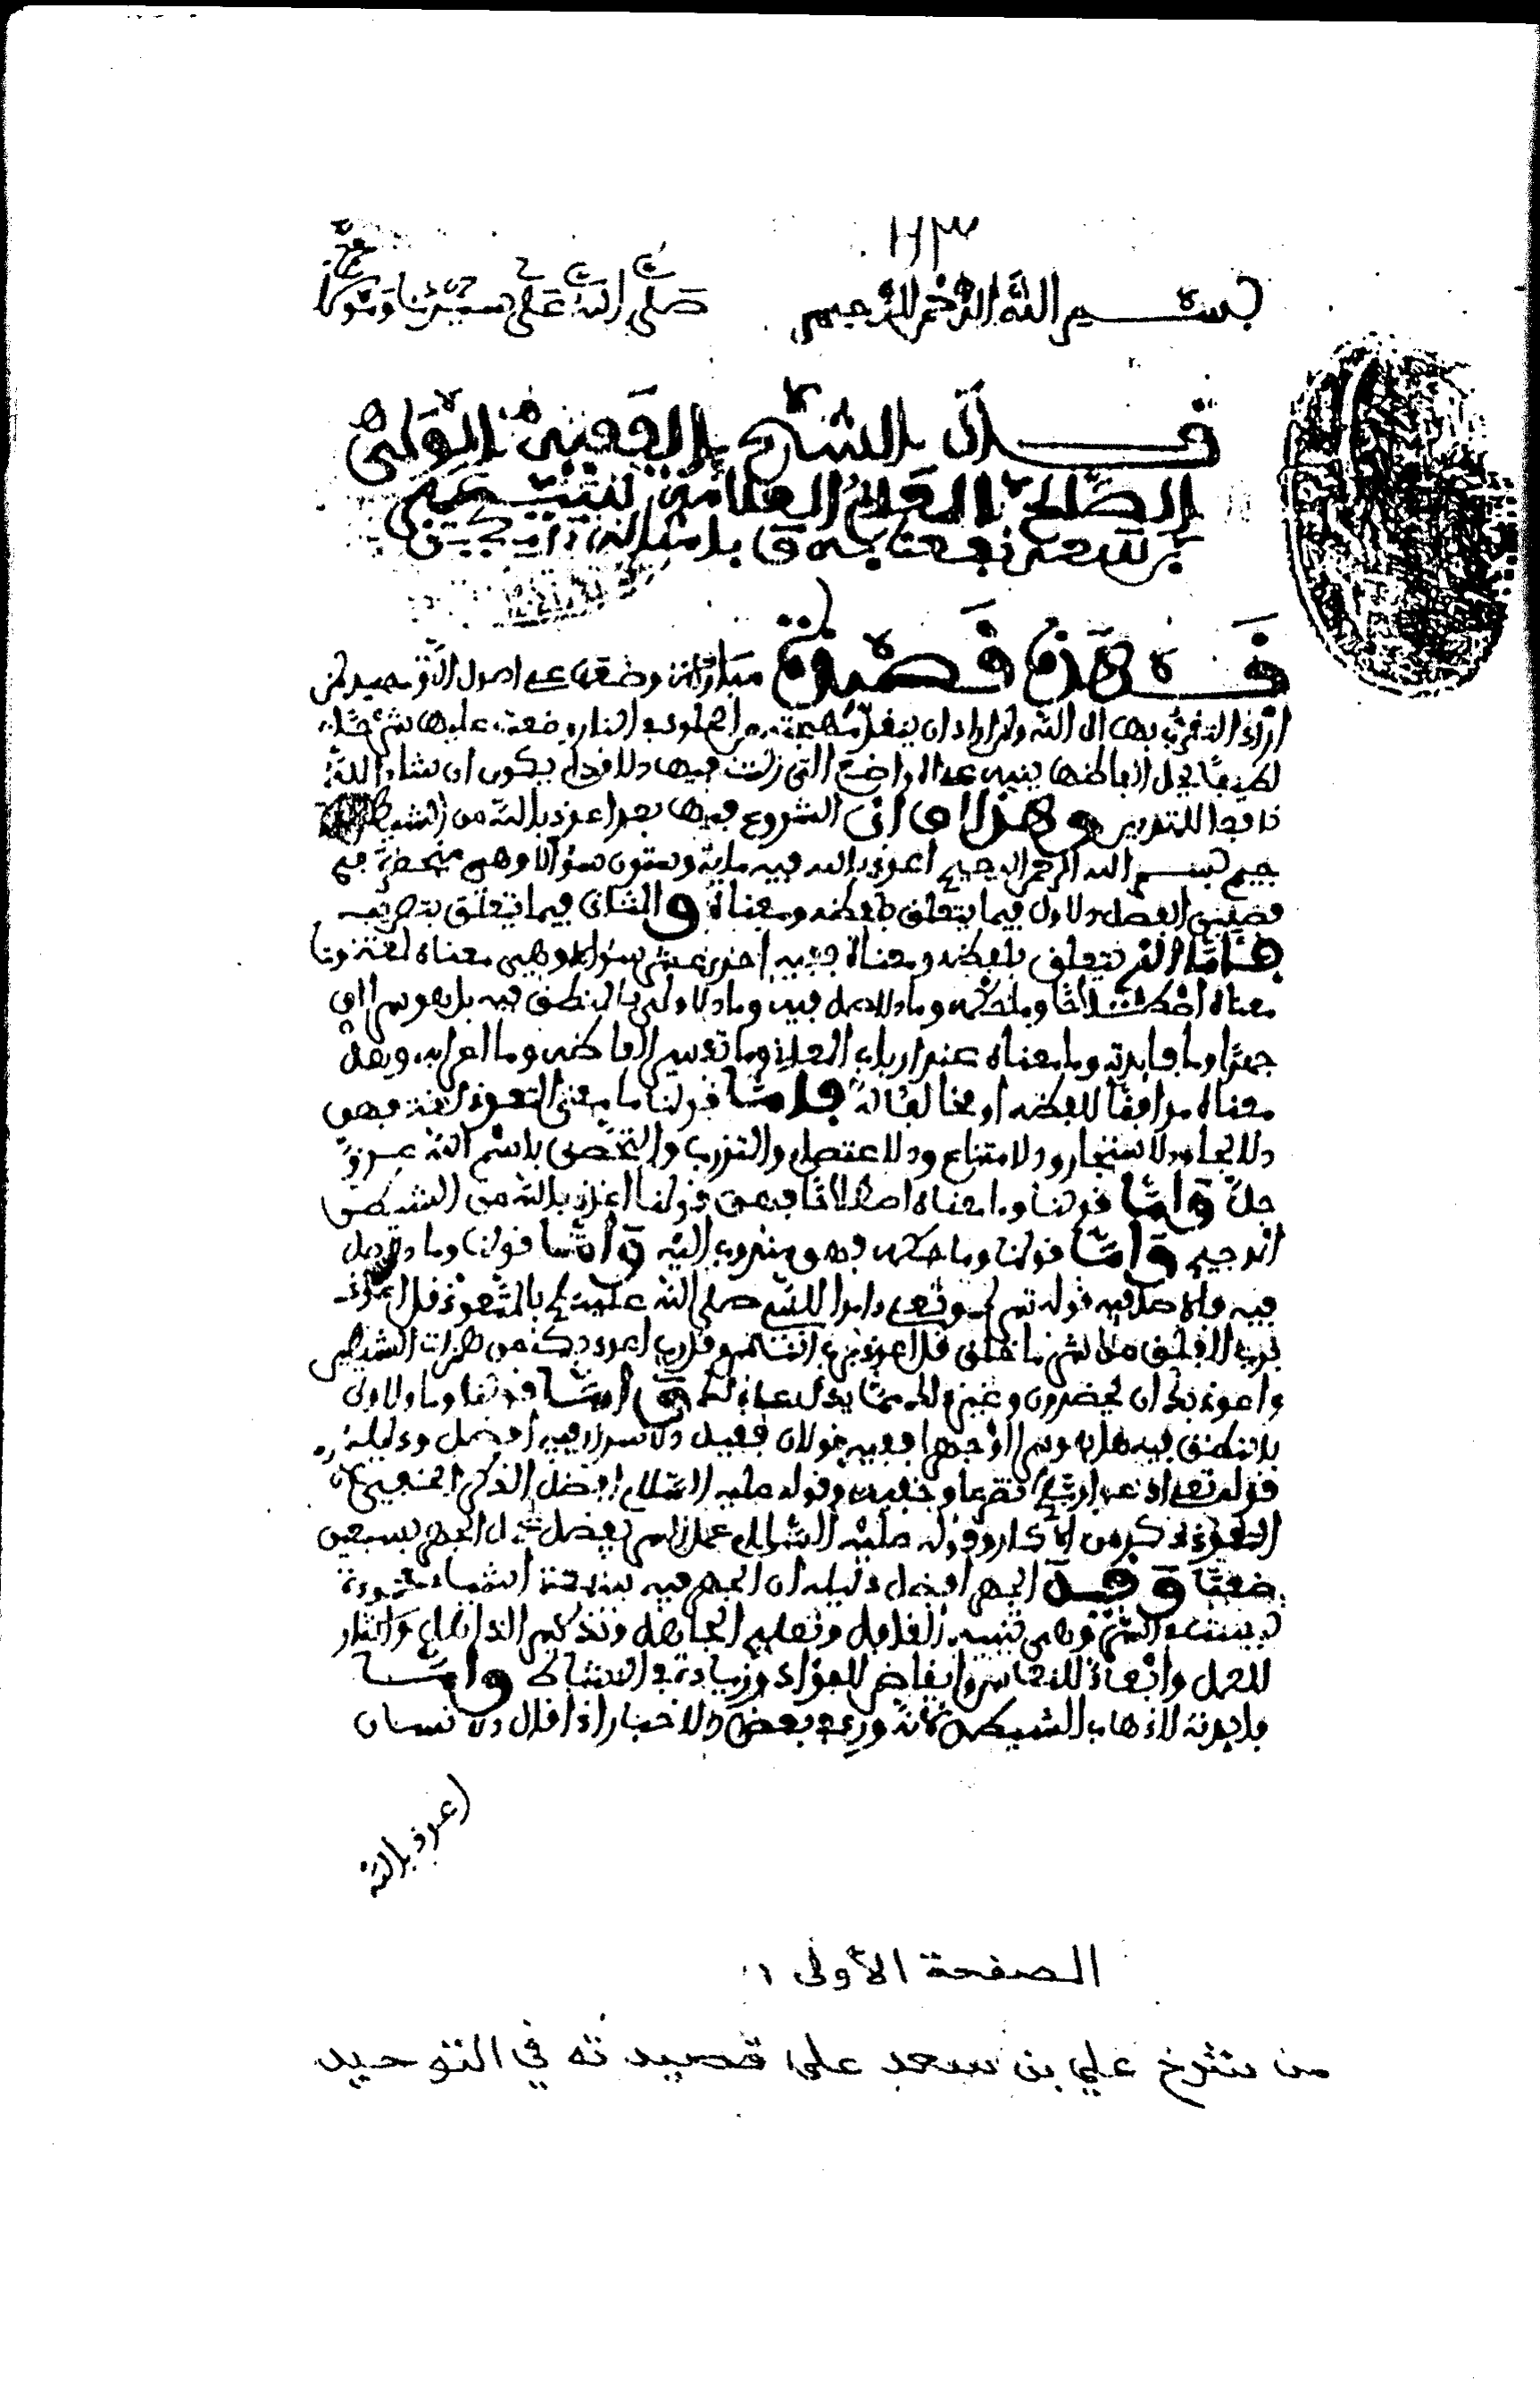 ١٢٣
بسم الله الرحمن الرحيم صلى الله على سيدنا ومولانا
قال الشيخ الفقيه الولي
الصالح العالم العلامة
بن سعد نفعنا به
فهذه قصيدة مباركة وضعتها على اصول التوحيد لمن
اراد التقرب بها الى الله ولمن اراد ان ينقذ مهجته من الخلود في النار وضعت عليها شرحا
لطيفا يحل الفاظها ينبه على المواضع التي زلت فيها الاقدام يكون ان شاء الله
نافعا للمتدبر وهذا اوان الشروع فيها بعد اعوذ بالله من الشيطان الر
جيم بسم الله الرحمن الرحيم اعوذ بالله فيه ماية وستون سؤالا وهي منحصرة في
فصلين الفصل الاول فيما يتعلق بلفظه ومعناه والثاني فيما يتعلق بتصريفه
فاما الذي يتعلق بلفظه ومعناه ففيه احد عشر سؤالا وهي معناه لغة وما
معناه اصطلاحا وما حكمه وما الاصل فيه وما الاولى بالنطق فيه هل هو سرا او
جهرا وما فايدته وما معناه عند ارباب العلم وما تفسير الفاظه وما اعرابه وهل
معناه موافقا للفظه او مخالفا له فاما قولنا ما معنى التعوذ لغة فهو
الالجاء والاستجار والامتناع والاعتصام والتحصن باسم الله عز و
جل واما قولنا وما معناه اصطلاحا فهو قولنا اعوذ بالله من الشيطان
الرجيم واما قولنا وما حكمه فهو مندوب اليه واما قولنا وما الاصل
فيه فالاصل فيه قوله تعالى امرا للنبي صلى الله عليه بالتعوذ قل اعوذ
برب الفلق من شر ما خلق قل اعوذ برب الناس وقل رب اعوذ بك من همزات الشياطين
واعوذ بك رب ان يحضرون وغير ذلك مما يدل على ذلك واما قولنا وما الاولى
بالنطق فيه هل هو سرا او جهرا ففيه قولان فقيل الاسرار فيه افضل ودليله
قوله تعالى ادعوا ربكم تضرعا وخفية وقوله عليه السلام افضل الذكر الخفي لان
التعوذ ذكر من الاذكار وقوله عليه السلام عمل السر يفضل عمل الجهر بسبعين
ضعفا وقيل الجهر افضل دليله ان الجهر فيه اشياء محمودة
وهي تنبيه الغافل وتعليم الجاهل وتذكير الذاكر
للعمل وابعاد للنعاس وايقاض للفؤاد وزيادة في النشاط واما
فايدته لاذهاب الشيطان لانه ورد في بعض الاخبار اذا قال الانسان
اعوذ بالله
الصفحة الأولى ١
من شرح علي بن سعد على قصيدته في التوحيد